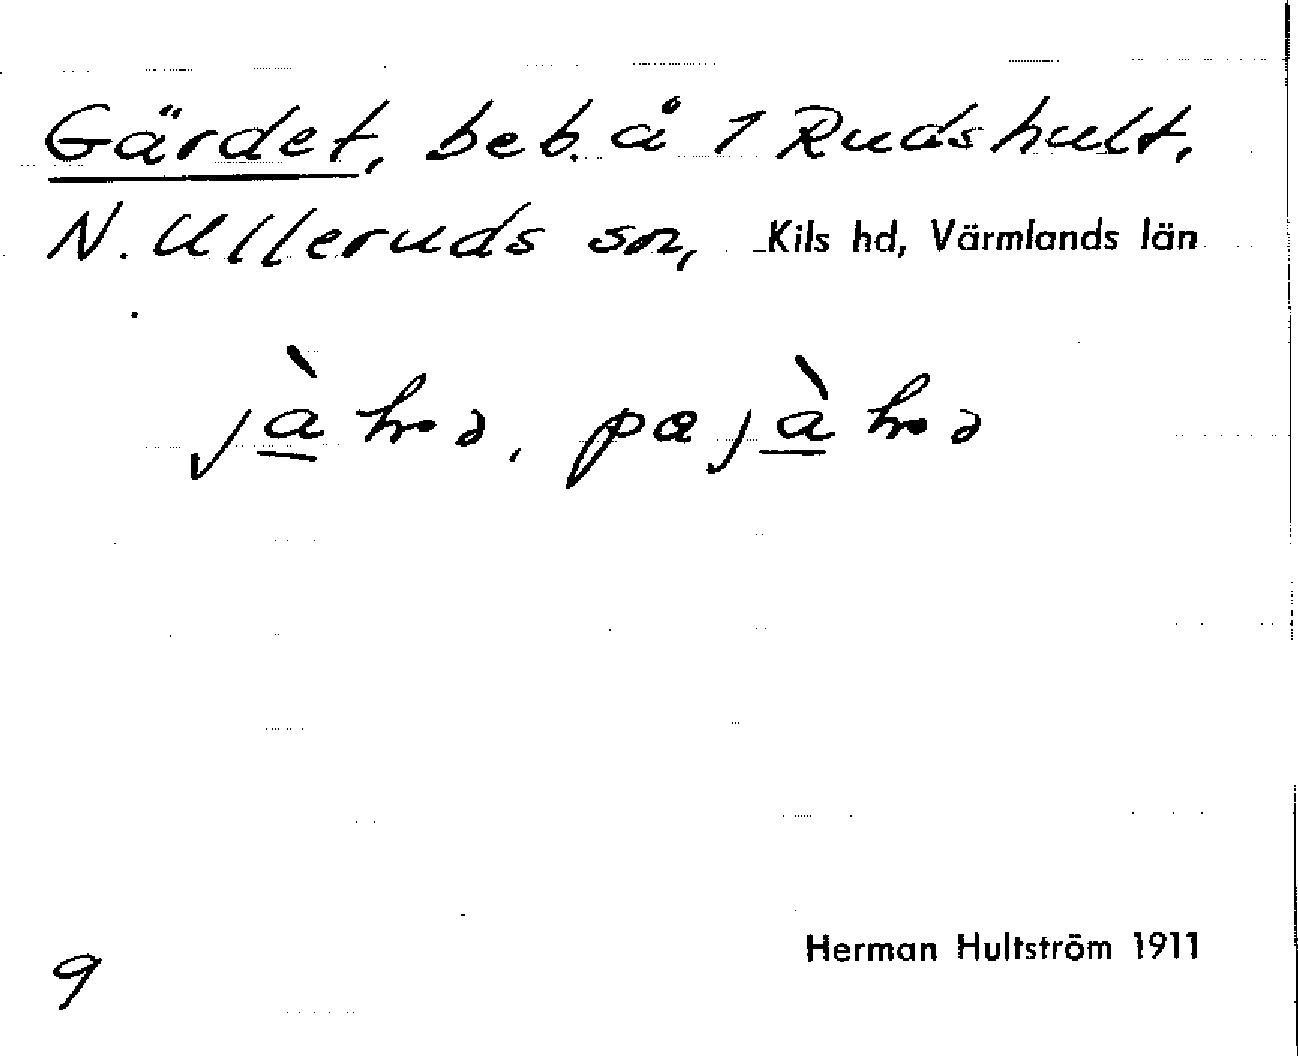 Gärdet, beb. å 1 Rudshult,
N. Ulleruds sn, Kils hd, Värmlands län
9
Herman Hultström 1911